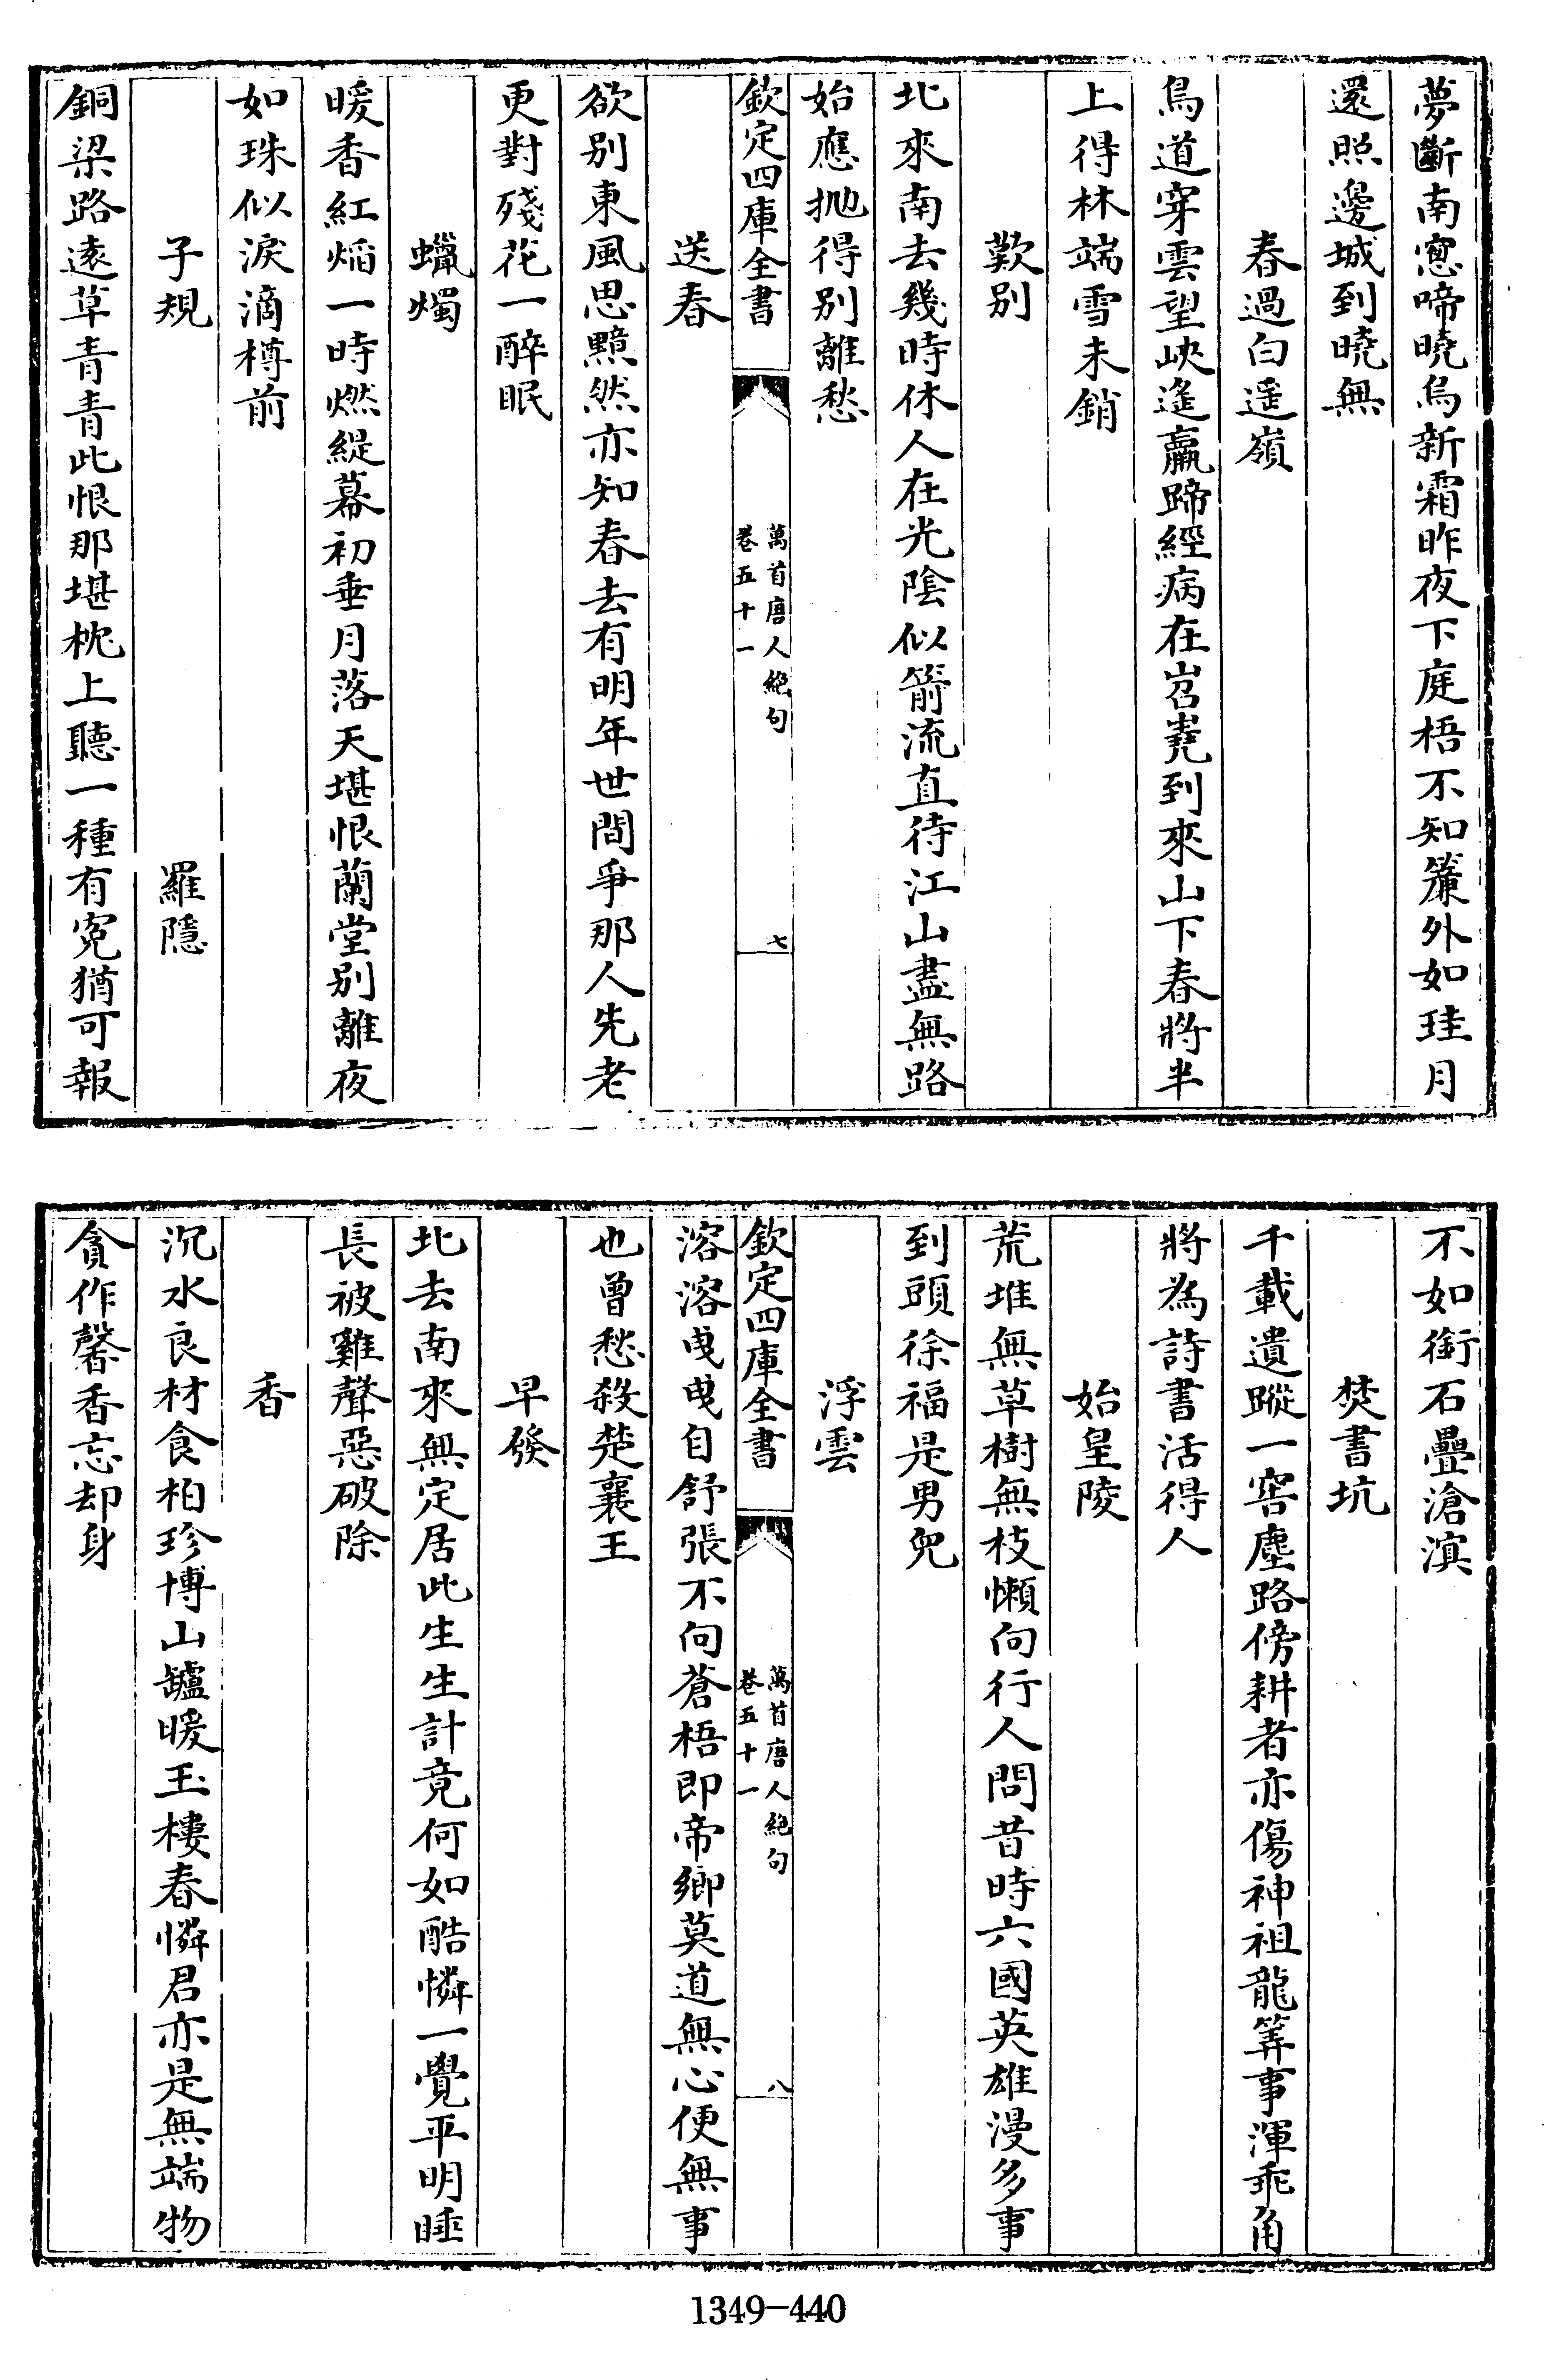 夢斷南窻啼曉烏新霜昨夜下庭梧不知簾外如珪月
還照邊城到曉無
春過白遥嶺
鳥道穿雲望峽遙羸蹄經病在岧嶤到來山下春將半
上得林端雪未銷
歎別
北來南去幾時休人在光陰似箭流直待江山盡無路
始應抛得別離愁
欽定四庫全書
萬首唐人絶句
卷五十一
七
送春
欲別東風思黯然亦知春去有明年世間爭那人先老
更對殘花一醉眠
蠟燭
暖香紅熖一時燃緹幕初垂月落天堪恨蘭堂別離夜
如珠似淚滴樽前
子規
羅隱
銅梁路遠草青青此恨那堪枕上聽一種有寃猶可報
不如銜石疊滄溟
焚書坑
千載遺蹤一窖塵路傍耕者亦傷神祖龍筭事渾乖角
將為詩書活得人
始皇陵
荒堆無草樹無枝懶向行人問昔時六國英雄漫多事
到頭徐福是男兒
浮雲
溶溶曵曵自舒張不向蒼梧即帝鄉莫道無心便無事
欽定四庫全書
萬首唐人絶句
卷五十一
八
也曾愁殺楚襄王
早發
北去南來無定居此生生計竟何如酷憐一覺平明睡
長被雞聲惡破除
香
沉水良材食柏珍博山罏暖玉樓春憐君亦是無端物
貪作馨香忘却身
1349-440